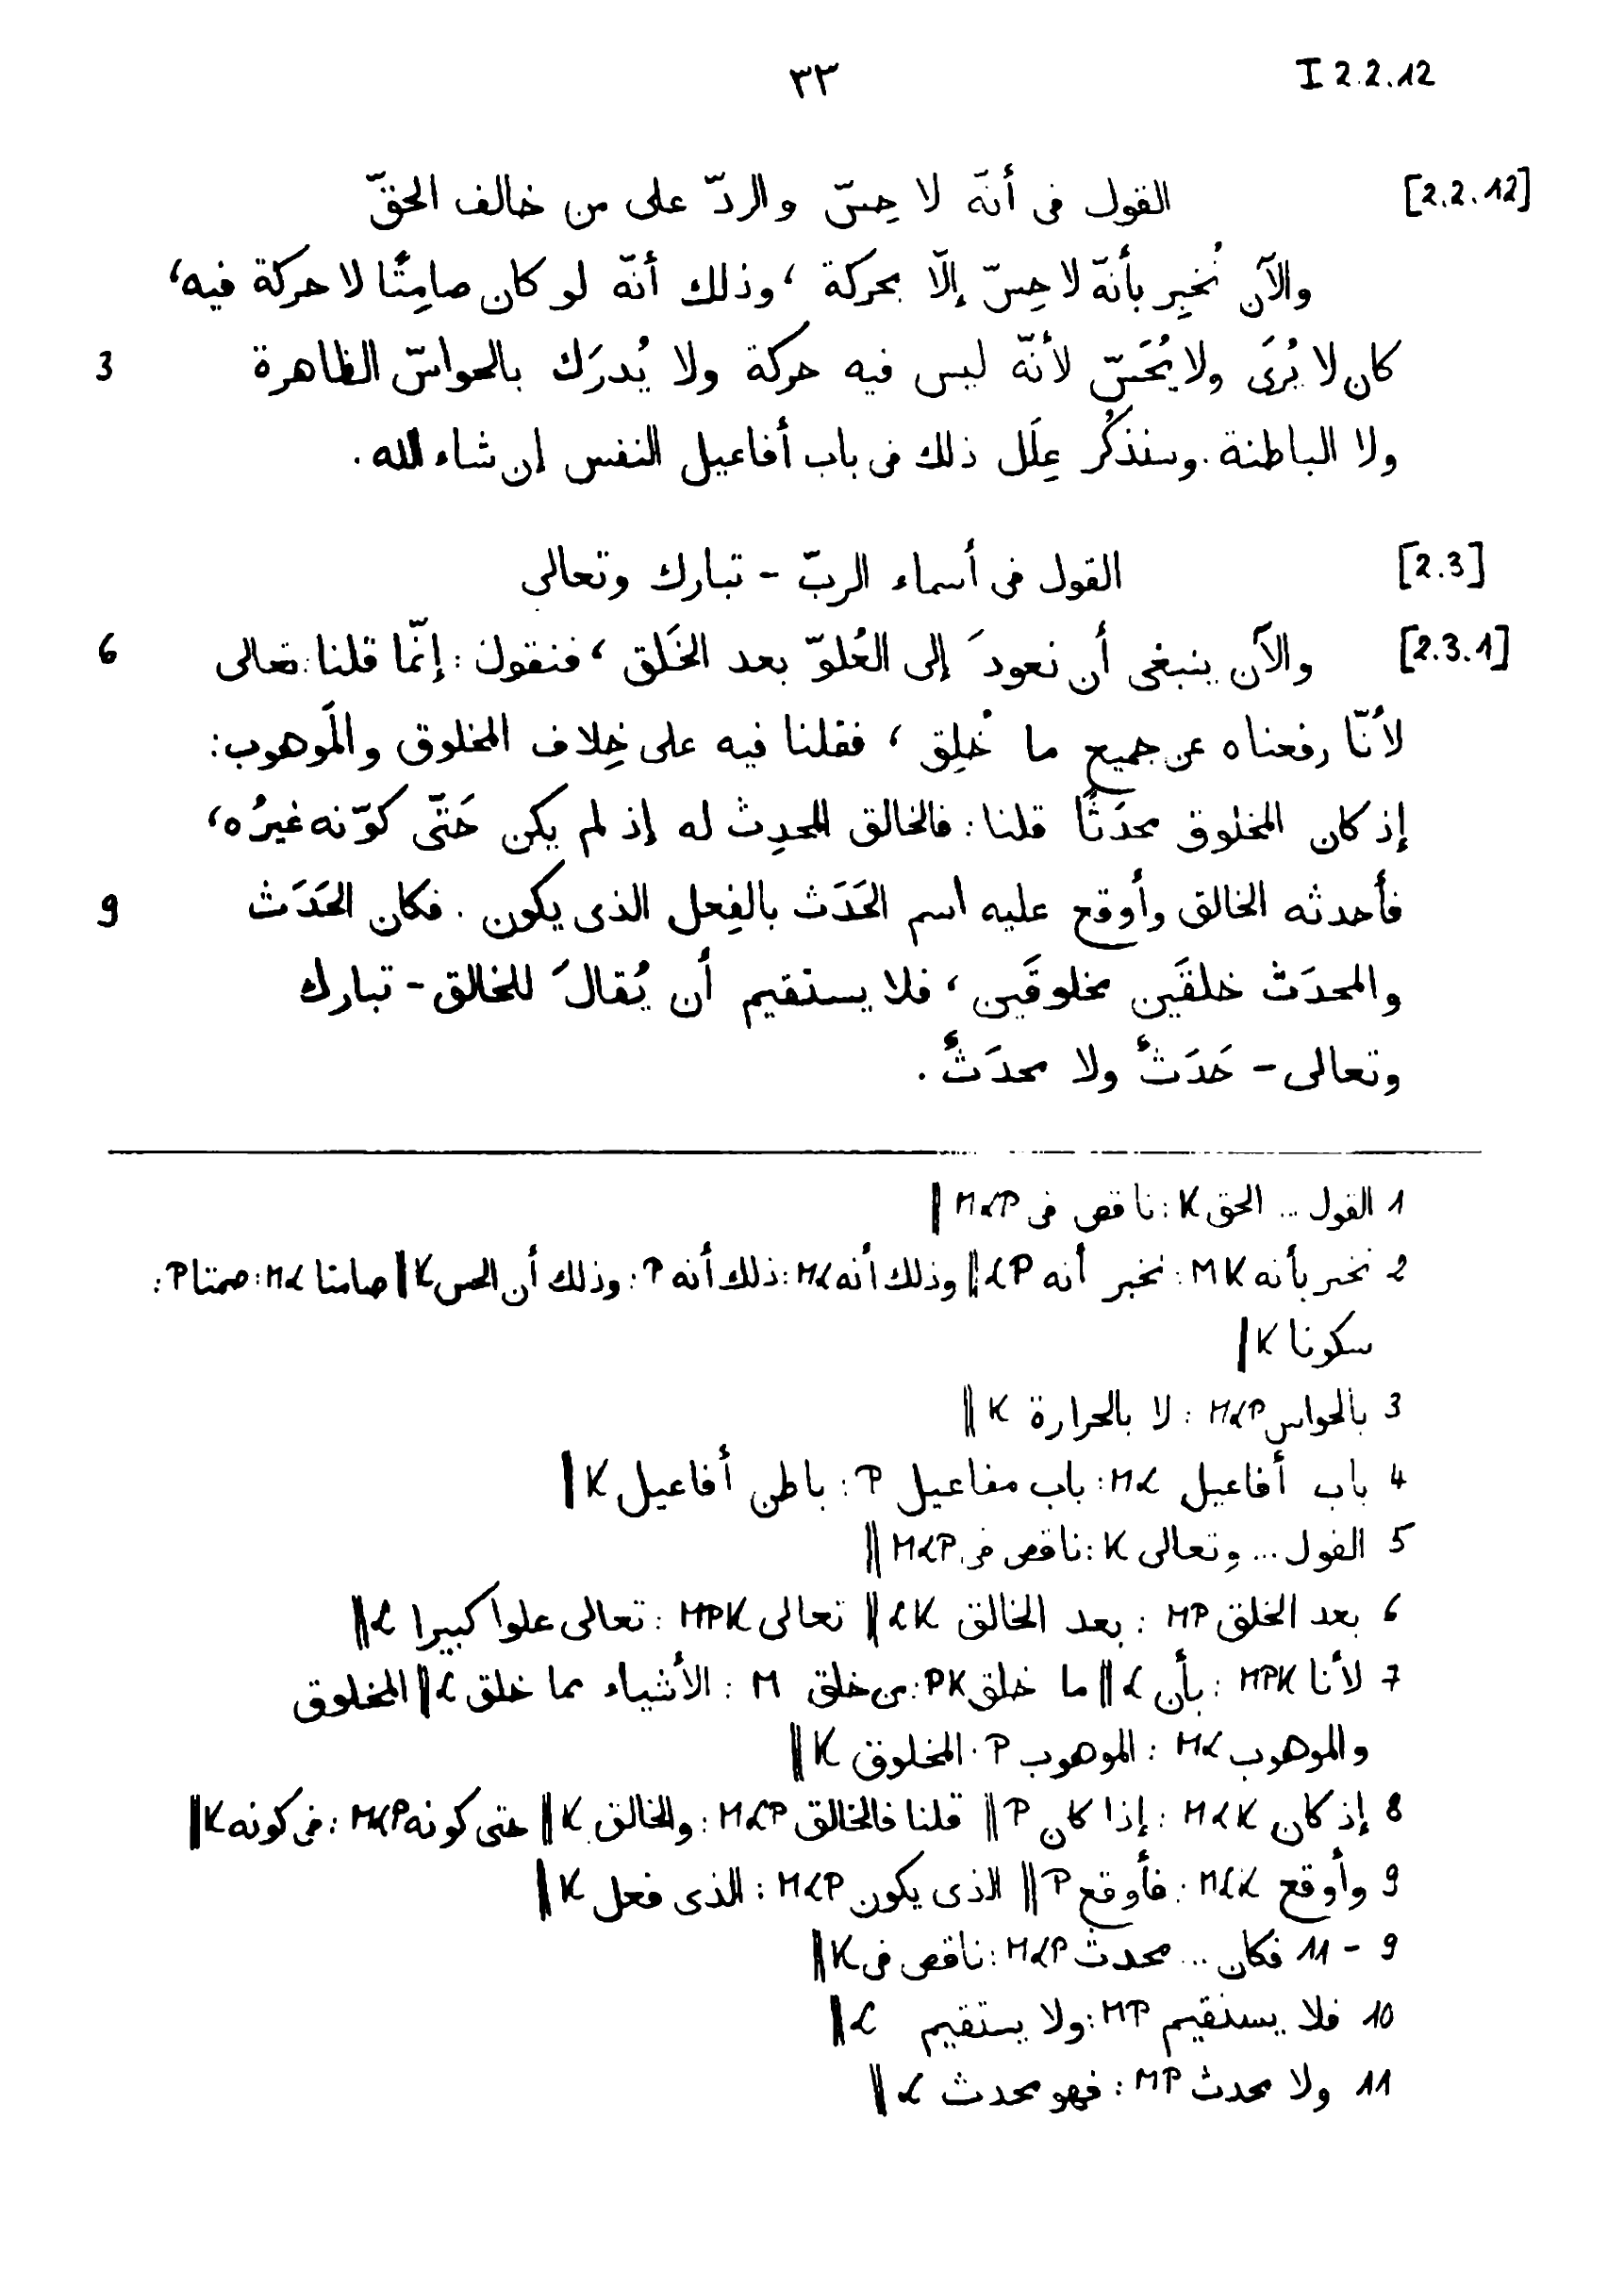 ٣٣ I 2.2.12
[2.2.12] القول فى أنّه لا حِسّ والردّ على من خالف الحقّ
والآن نُخبِر بأنّه لا حِسّ إلّا بحركة ، وذلك أنّه لو كان صامِتًا لا حركة فيه ،
3 كان لا يُرَى ولا يُحَسّ لأنّه ليس فيه حركة ولا يُدرَك بالحواسّ الظاهرة
ولا الباطنة . وسنذكُر عِلَل ذلك فى باب أفاعيل النفس إن شاء الله .
[2.3] القول فى أسماء الربّ - تبارك وتعالى
6 [2.3.1] والآن ينبغى أن نعودَ إلى العُلوّ بعد الخَلق ، فنقول : إنّما قلنا : تعالى
لأنّا رفعناه عن جميع ما خُلِق ، فقلنا فيه على خِلاف المخلوق والمَوهوب :
إذ كان المخلوق محدَثًا قلنا : فالخالق المحدِث له إذ لم يكن حَتّى كوّنه غيرُه ،
9 فأحدثه الخالق وأوقع عليه اسم الحَدَث بالفِعل الذى يكون . فكان الحَدَث
والمحدَث خلقَين مخلوقَين ، فلا يستقيم أن يُقالَ للخالق - تبارك
وتعالى - حَدَثٌ ولا محدَثٌ .
1 القول ... الحق K : ناقص فى MLP ||
2 نخبر بأنه MK : نخبر أنه LP || وذلك أنه ML : ذلك أنه P : وذلك أن الحس K || صامتا ML : صمتا P :
سكونا K ||
3 بالحواس MLP : لا بالحرارة K ||
4 باب أفاعيل ML : باب مفاعيل P : باطن أفاعيل K ||
5 القول ... وتعالى K : ناقص فى MLP ||
6 بعد الخلق MP : بعد الخالق LK || تعالى MPK : تعالى علوا كبيرا L ||
7 لأنا MPK : بأن L || ما خلق PK : من خلق M : الأشياء مما خلق L || المخلوق
والموهوب ML : الموهوب P : المخلوق K ||
8 إذ كان MLK : إذا كان P || قلنا فالخالق MLP : والخالق K || حتى كونه MLP : فى كونه K ||
9 وأوقع MLK : فأوقع P || الذى يكون MLP : الذى فعل K ||
9 - 11 فكان ... محدث MLP : ناقص فى K ||
10 فلا يستقيم MP : ولا يستقيم L ||
11 ولا محدث MP : فهو محدث L ||